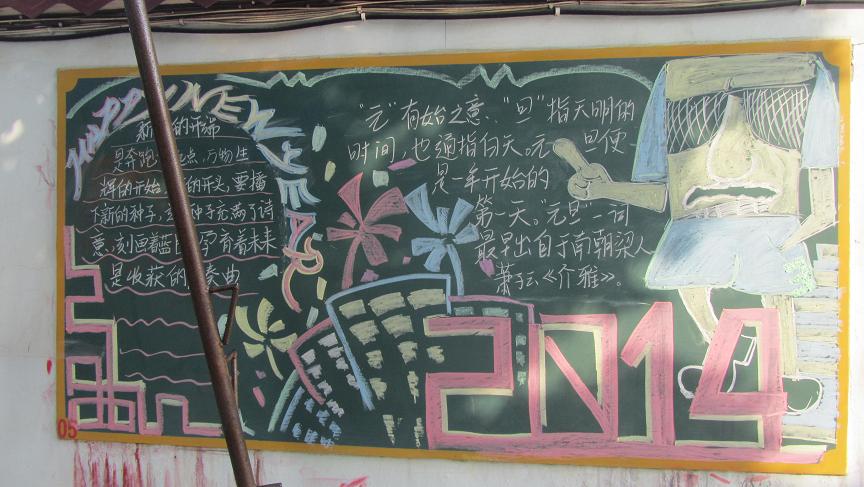 HAPPY NEW YEAR
新 的开端
是奔跑 点,万物生
辉的开始 的开头,要播
下新的种子, 种子充满了诗
意,刻画着蓝 孕育着未来
是收获的 奏曲
"元"有始之意,"旦"指天明的
时间,也通指白天。元 旦便
是一年开始的
第一天。"元旦"一词
最早出自于南朝梁人
萧子云《介雅》。
2014
05